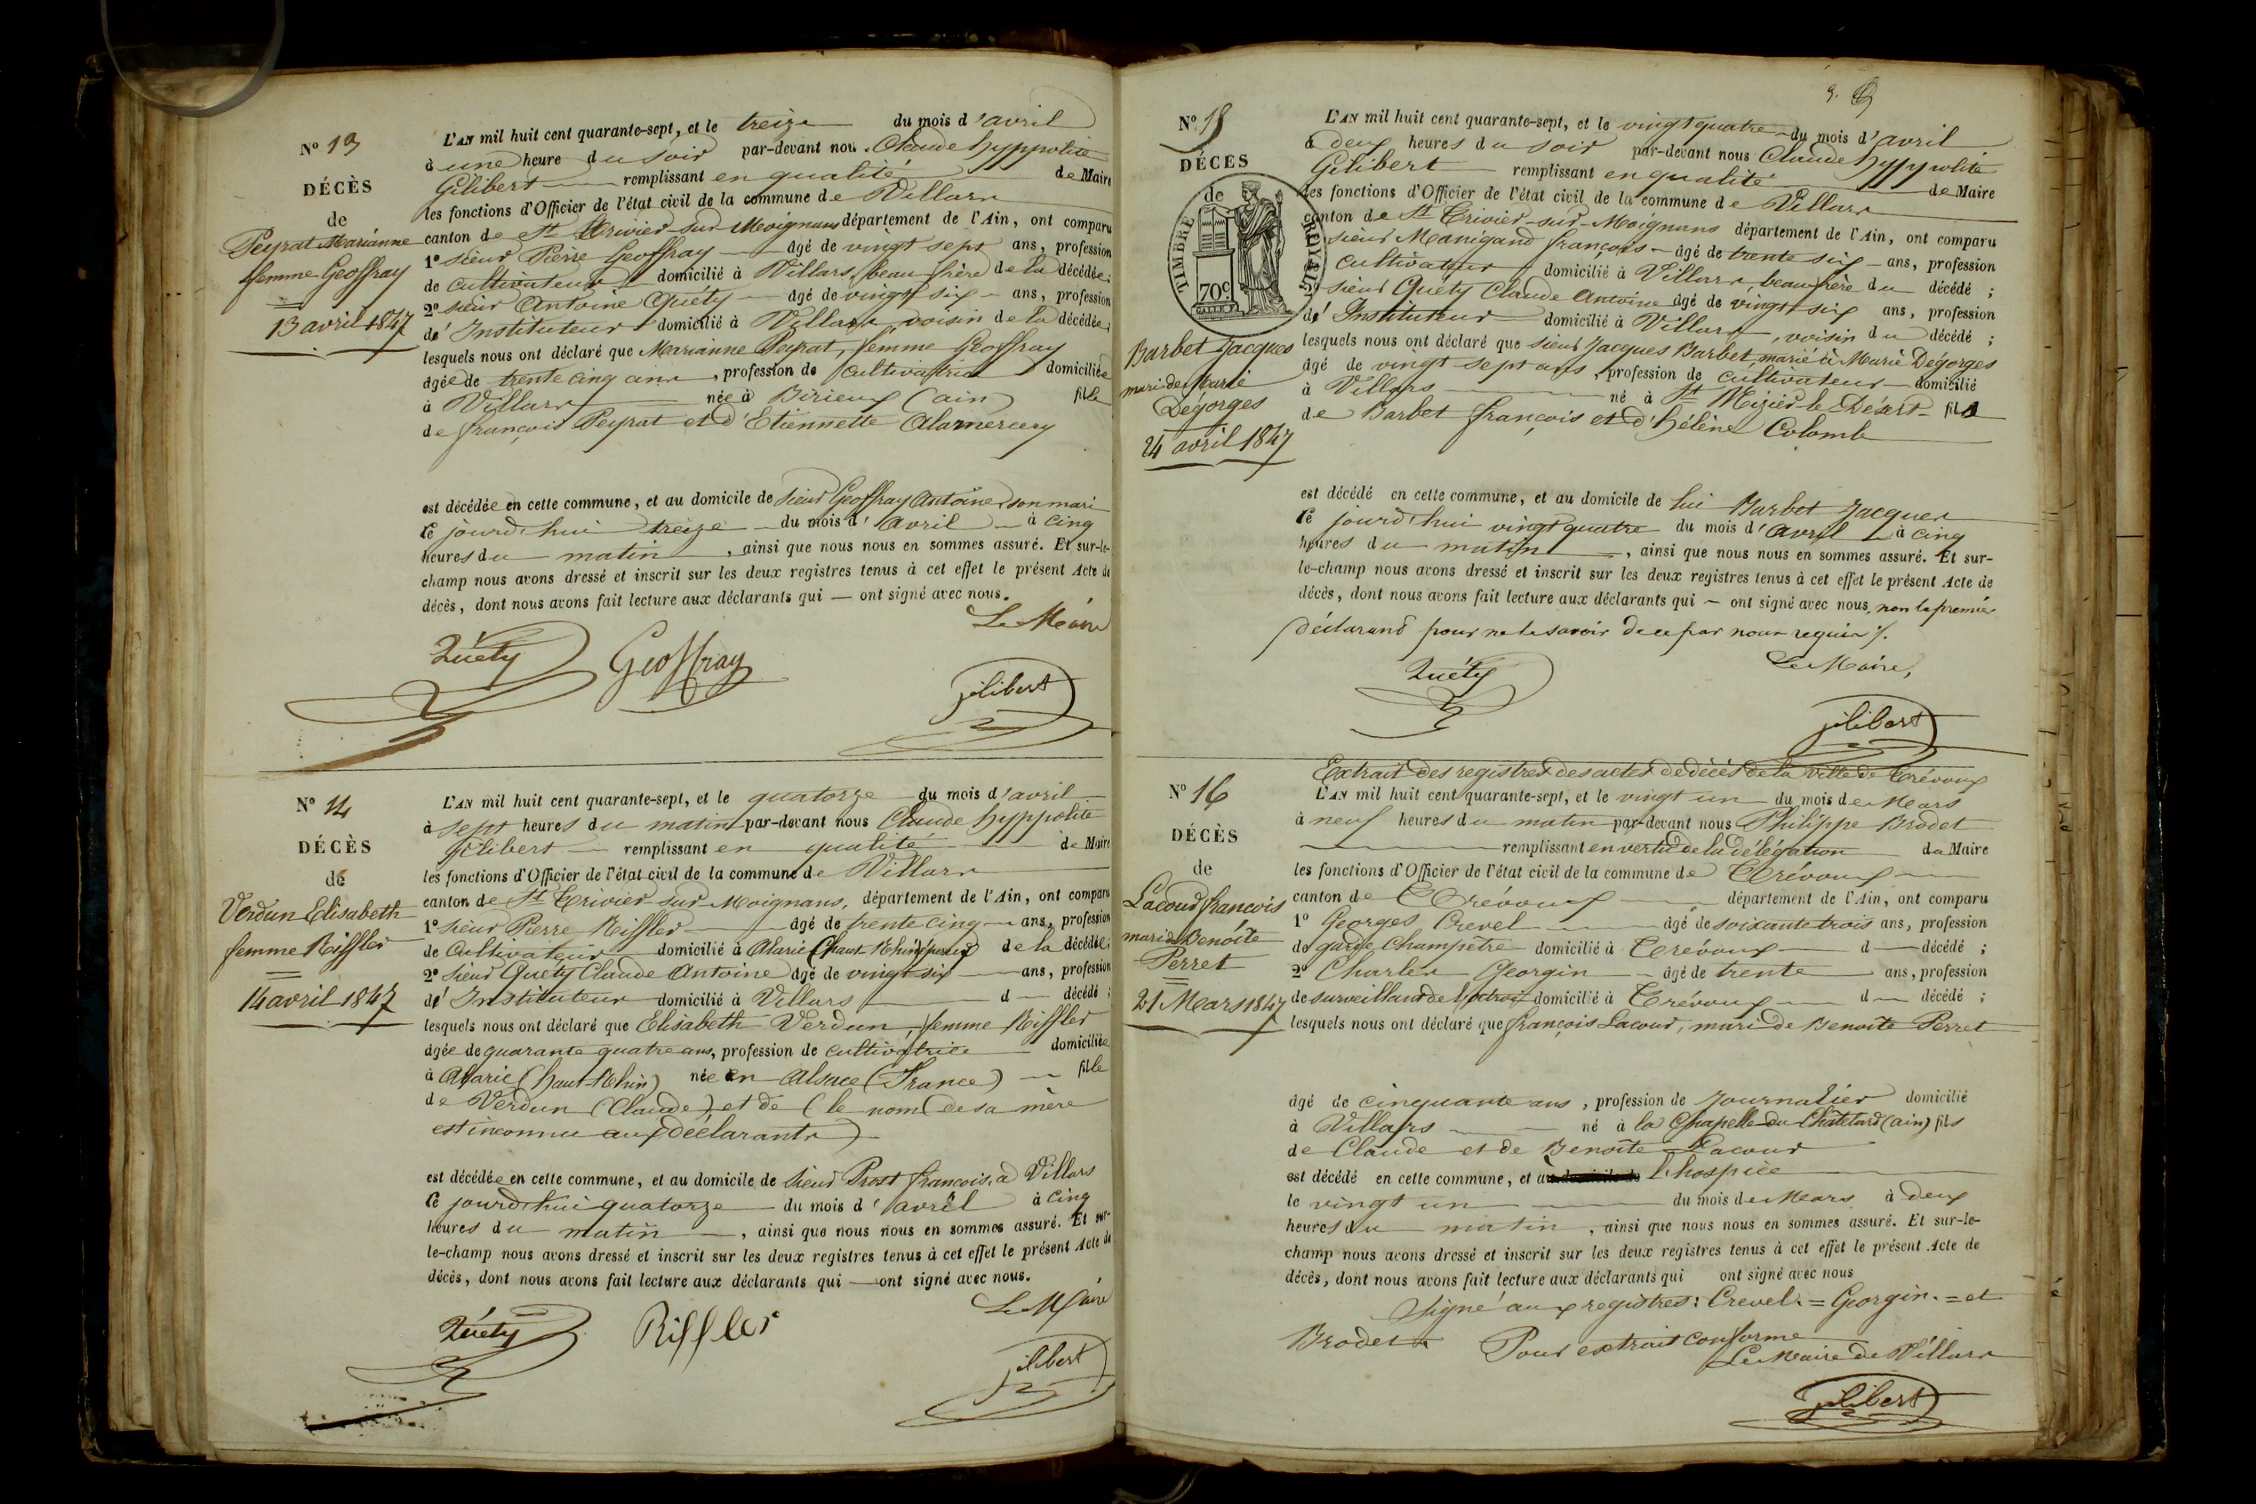 N° 13
DÉCÈS
de
Peyrat Marianne
femme Geoffray
13 avril 1847
L'AN mil huit cent quarante-sept, et le treize du mois d'avril
à une heure du soir par-devant nous Claude hyppolite
Gilibert remplissant en qualité de Maire
les fonctions d'Officier de l'état civil de la commune de Villars
canton de St Trivier sur Moignans département de l'Ain, ont comparu
1° sieur Pierre Geoffray âgé de vingt sept ans, profession
de cultivateur domicilié à Villars, beau frère de la décédée;
2° sieur Antoine Quéty âgé de vingt six ans, profession
d'Instituteur domicilié à Villars voisin de la décédée;
lesquels nous ont déclaré que Marianne Peyrat, femme Geoffray
âgée de trente cinq ans, profession de cultivatrice domiciliée
à Villars née à Birieux (ain) fille
de françois Peyrat et d'Etiennette Alamercery
est décédée en cette commune, et au domicile de sieur Geoffray Antoine, son mari
ce jourd'hui treize du mois d'avril à cinq
heures du matin, ainsi que nous nous en sommes assuré. Et sur-le-
champ nous avons dressé et inscrit sur les deux registres tenus à cet effet le présent Acte de
décès, dont nous avons fait lecture aux déclarants qui — ont signé avec nous.
Le Maire
Quéty Geoffray
gilibert
N° 14
DÉCÈS
de
Verdun Elisabeth
femme Riffler
14 avril 1847
L'AN mil huit cent quarante-sept, et le quatorze du mois d'avril
à sept heures du matin par-devant nous Claude hyppolite
Gilibert remplissant en qualité de Maire
les fonctions d'Officier de l'état civil de la commune de Villars
canton de St Trivier sur Moignans, département de l'Ain, ont comparu
1° sieur Pierre Riffler âgé de trente cinq ans, profession
de Cultivateur domicilié à (haut Rhin) de la décédée;
2° sieur Quéty Claude Antoine âgé de vingt six ans, profession
d'Instituteur domicilié à Villars d décédé;
lesquels nous ont déclaré que Elisabeth Verdun, femme Riffler
âgée de quarante quatre ans, profession de cultivatrice domiciliée
à (haut-Rhin) née en Alsace (France) fille
de Verdun (Claude) et de (le nom de sa mère
est inconnu aux déclarants)
est décédée en cette commune, et au domicile de sieur Prost françois, à Villars
ce jourd'hui quatorze du mois d'avril à cinq
heures du matin, ainsi que nous nous en sommes assuré. Et sur-
le-champ nous avons dressé et inscrit sur les deux registres tenus à cet effet le présent Acte de
décès, dont nous avons fait lecture aux déclarants qui — ont signé avec nous.
Le Maire
Quéty Riffler
gilibert
9.
N° 15
DÉCES
de
TIMBRE ROYAL
70c.
Barbet Jacques
mari de Marie
Dégorges
24 avril 1847
L'AN mil huit cent quarante-sept, et le vingt quatre du mois d'avril
à deux heures du soir par-devant nous Claude hyppolite
Gilibert remplissant en qualité de Maire
les fonctions d'Officier de l'état civil de la commune de Villars
canton de St Trivier-sur-Moignans département de l'Ain, ont comparu
sieur Manigand françois âgé de trente six ans, profession
cultivateur domicilié à Villars, beau frère du décédé;
sieur Quéty Claude Antoine âgé de vingt six ans, profession
d'Instituteur domicilié à Villars, voisin du décédé;
lesquels nous ont déclaré que sieur Jacques Barbet, marié à Marie Dégorges
âgé de vingt sept ans, profession de cultivateur domicilié
à Villars né à St Nizier-le-Désert fils
de Barbet françois et d'hélène Colomb
est décédé en cette commune, et au domicile de lui Barbet Jacques
ce jourd'hui vingt quatre du mois d'avril à cinq
heures du matin, ainsi que nous nous en sommes assuré. Et sur-
le-champ nous avons dressé et inscrit sur les deux registres tenus à cet effet le présent Acte de
décès, dont nous avons fait lecture aux déclarants qui — ont signé avec nous, non le premier
déclarant pour ne le savoir de ce par nous requis /.
Le Maire,
Quéty
gilibert
N° 16
DÉCÈS
de
Lacour françois
mari de Benoite
Perret
21 Mars 1847
Extrait des registres des actes de décès de la ville de Trévoux
L'AN mil huit cent quarante-sept, et le vingt un du mois de Mars
à neuf heures du matin par-devant nous Philippe Brodet
remplissant en vertu de la délégation du Maire
les fonctions d'Officier de l'état civil de la commune de Trévoux
canton de Trévoux département de l'Ain, ont comparu
1° Georges Crevel âgé de soixante trois ans, profession
de garde Champêtre domicilié à Trévoux d décédé;
2° Charles Georgin âgé de trente ans, profession
de surveillant de l'octroi domicilié à Trévoux d décédé;
lesquels nous ont déclaré que françois Lacour, mari de Benoîte Perret
âgé de cinquante ans, profession de Journalier domicilié
à Villars né à la Chapelle du Châtelard (ain) fils
de Claude et de Benoîte Lacour
est décédé en cette commune, et à l'hospice
le vingt un du mois de Mars à deux
heures du matin, ainsi que nous nous en sommes assuré. Et sur-le-
champ nous avons dressé et inscrit sur les deux registres tenus à cet effet le présent Acte de
décès, dont nous avons fait lecture aux déclarants qui ont signé avec nous
Signé aux registres: Crevel. = Georgin. = et
Brodet. Pour extrait conforme
Le Maire de Villars
gilibert